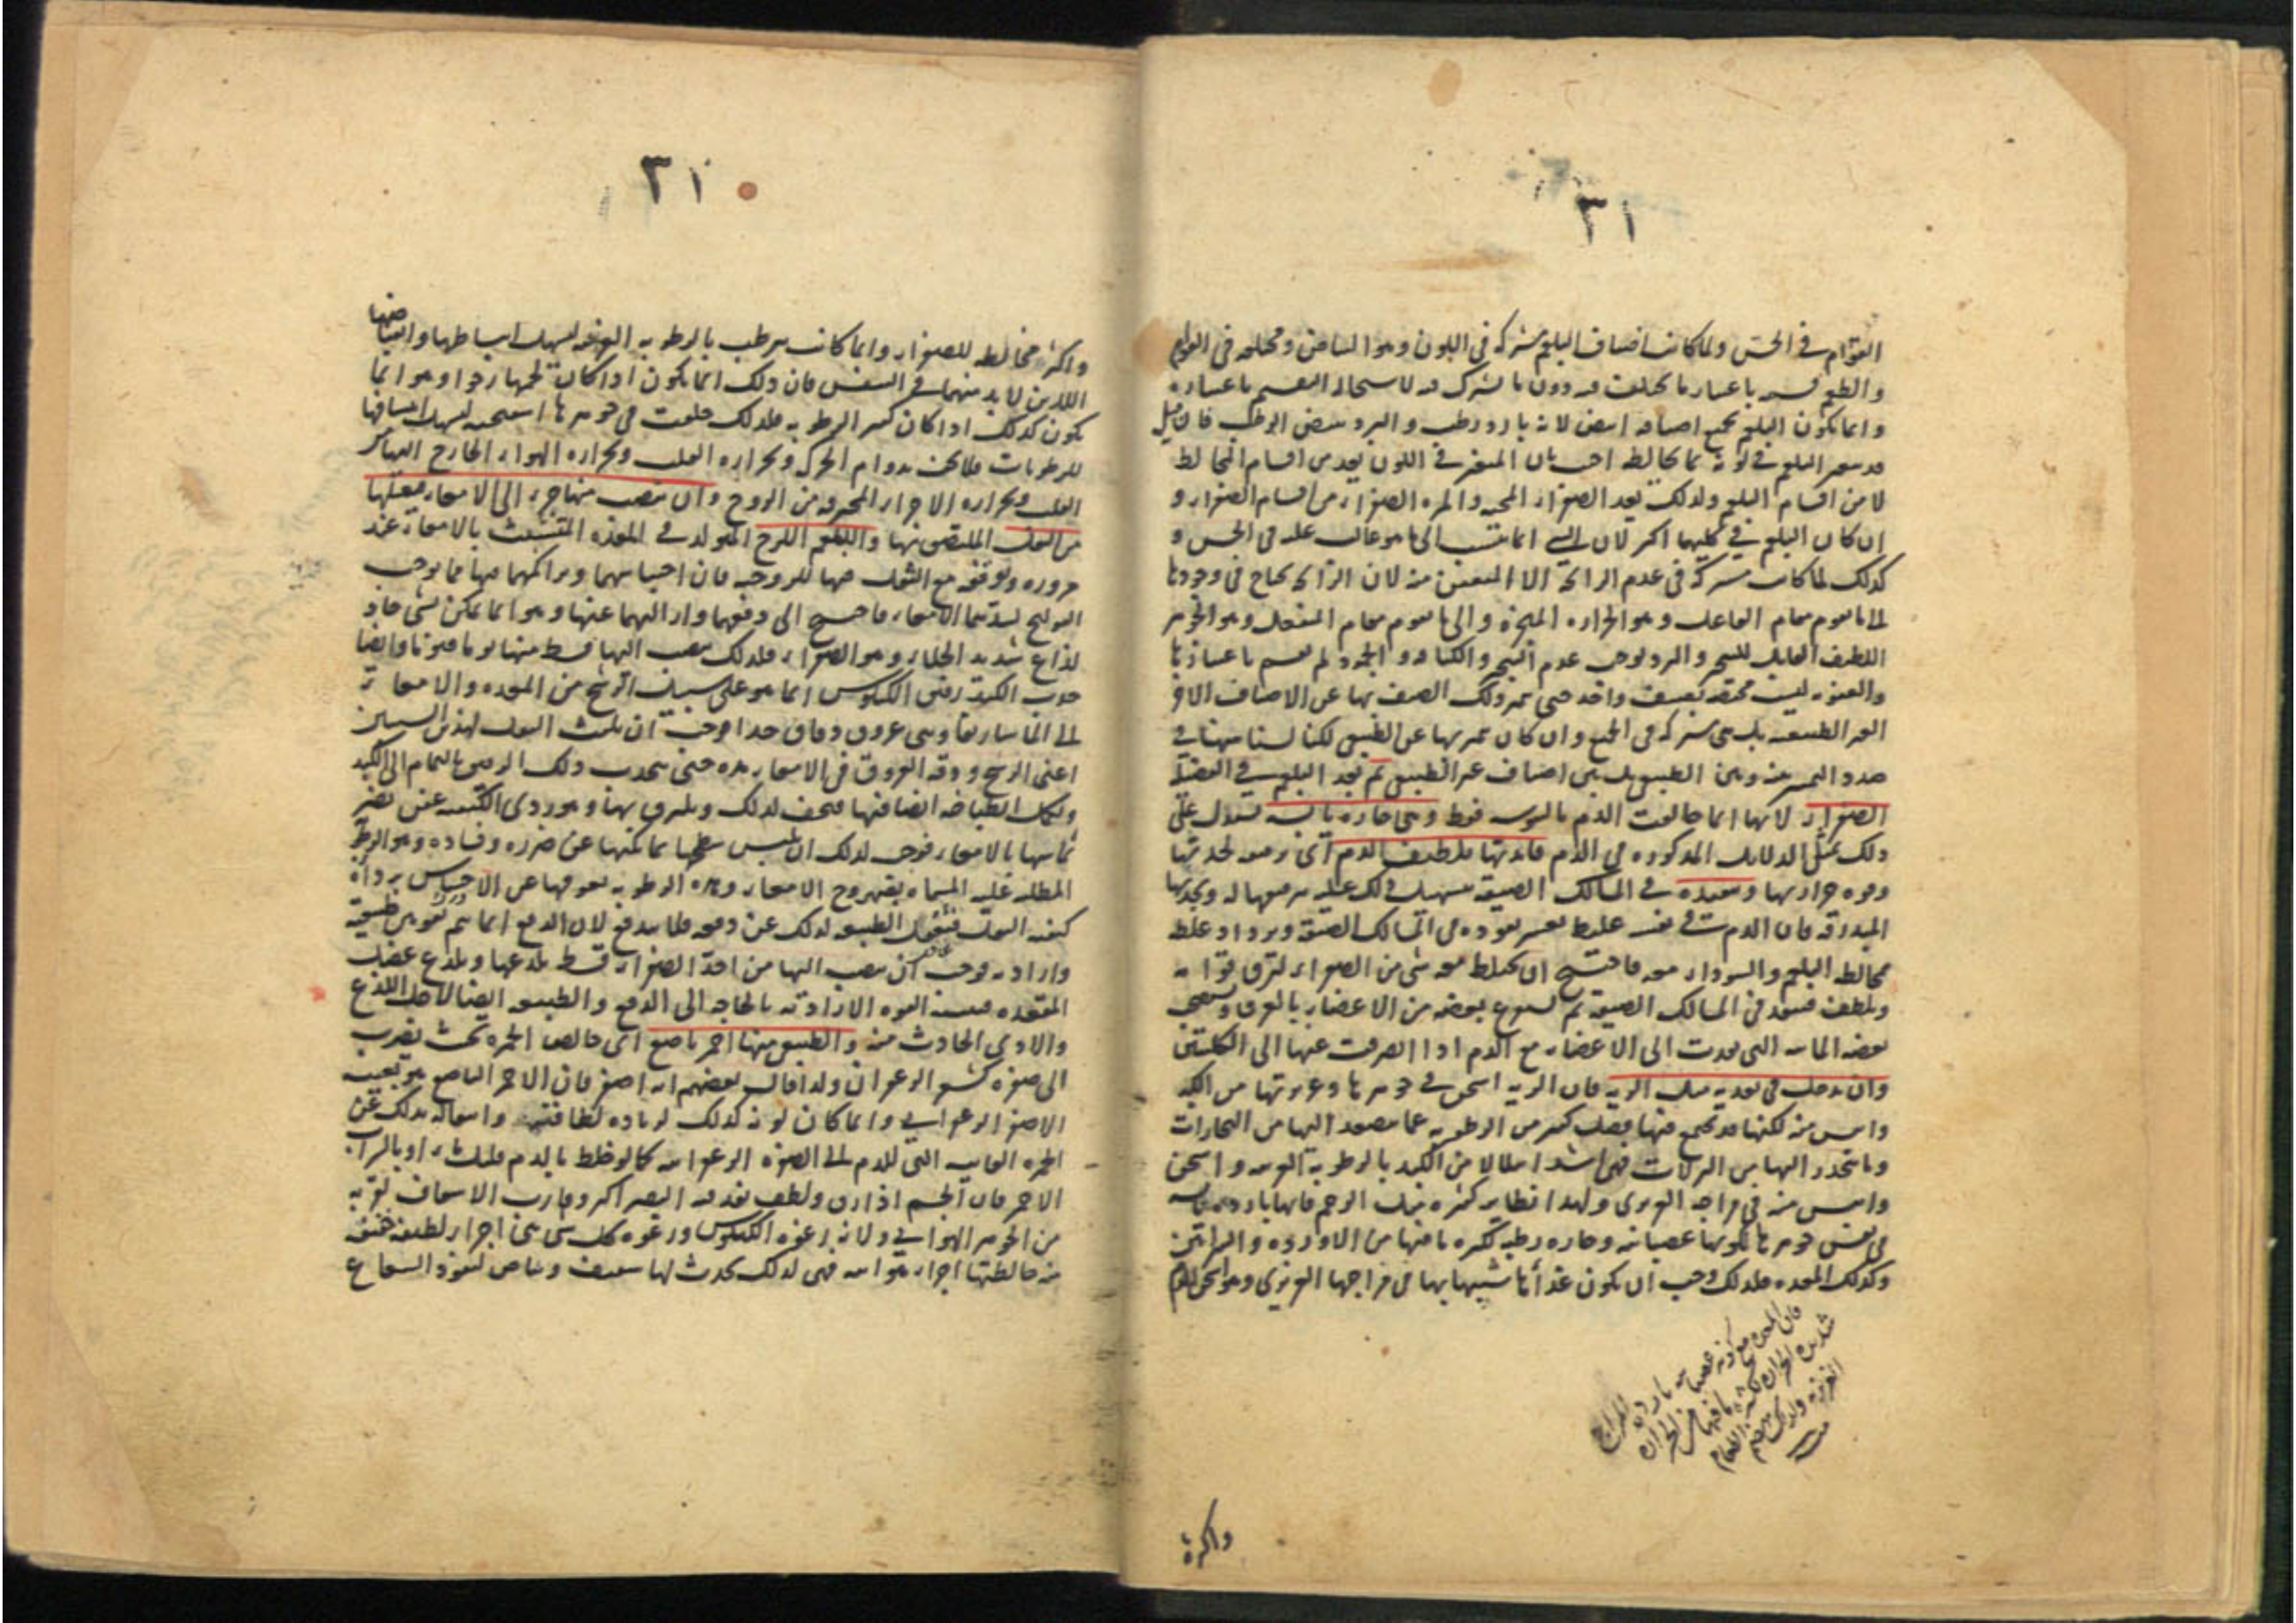 ٣١
القوام في الحس ولما كانت اصناف البلغم مشتركه في اللون وهو البياض ومختلفه في القوام
والطعم قسم باعتبار ما يختلف فيه دون ما يشترك فيه لاستحالة التقسيم باعتباره
وانما يكون البلغم بجميع اصنافه ابيض لانه بارد رطب والبرد يبيض الرطب فان قيل
قد يتغير البلغم في لونه بما يخالطه اجيب بان المتغير في اللون يعد من اقسام المخالط
لا من اقسام البلغم ولذلك يعد الصفراء المحيه والمره الصفراء من اقسام الصفراء و
ان كان البلغم في كليهما اكثر لان الشي انما ينسب الى ما هو غالب عليه في الحس و
كذلك لما كانت مشتركه في عدم الرائحه الا العفن منه لان الرائحه يحتاج في وجودها
الى ما يقوم مقام الفاعل وهو الحراره المبخره والى ما يقوم مقام المنفعل وهو الجوهر
اللطيف القابل للتبخر والبرد يوجب عدم التبخر والكثافه والجمود لم يقسم باعتبارها
والعفونه ليست مختصه بصنف واحد حتى يميز ذلك الصنف بها عن الاصناف الاخر
الغير الطبيعيه بل هي مشتركه في الجميع وان كان يميز بها عن الطبيعي لكنا لسنا ههنا في
صدد التمييز بينه وبين الطبيعي بل بين اصناف غير الطبيعي ثم بعد البلغم في الفضل
الصفراء لانها انما خالفت الدم باليبوسه فقط وهي حاره يابسه يستدل على
ذلك بمثل الدلايل المذكوره في الدم فائدتها تلطيف الدم اي ترقيقه لحدتها
وقوه حرارتها وتنفيذه في المسالك الضيقه تسهيل ذلك عليه بترقيقها له وبحدتها
المبدرقه فان الدم في نفسه غليظ يعسر نفوذه في المسالك الضيقه ويزداد غلظه
بمخالطه البلغم والسوداء معه فاحتيج ان يختلط معه شي من الصفراء لترق قوامه
ويلطف فينفذ في المسالك الضيقه ثم يندفع بعضه من الاعضاء بالعرق ويستصحب
بعضه المائيه التي نفذت الى الاعضاء مع الدم اذا انصرفت عنها الى الكليتين
وان يدخل في تغذيه مثل الريه فان الريه اسخن في جوهرها وغريزتها من الكبد
وايبس منه لكنها قد يجتمع فيها فضل كثير من الرطوبه عما يصعد اليها من البخارات
وما ينحدر اليها من النزلات فهي اشد ابتلالا من الكبد بالرطوبه الغريبه واسخن
وايبس منه في مزاجه الغريزي ولهذا نظاير كثيره مثل الرحم فانها بارده يابسه
في نفس جوهرها لكونها عصبانيه وحاره رطبه لكثره ما فيها من الاورده والشرايين
وكذلك المعده فلذلك وجب ان يكون غذاؤها شبيها بها في مزاجها الغريزي وهو الحق للدم
فان المعده مع كونها عصبانيه بارده المزاج
شديده الحراره لكثره ما فيها من الحراره
الغريزيه ولذلك تهضم الطعام
منه
واكثره
٣١
واكثره مخالطه للصفراء وانما كانت يرطب بالرطوبه الغريبه ليسهل انبساطها وانقباضها
اللذين لا بد منهما في التنفس فان ذلك انما يكون اذا كان لحمها رخوا وهو انما
يكون كذلك اذا كان كثير الرطوبه فلذلك خلقت في جوهرها اسفنجيه ليسهل انتسافها
للرطوبات فلا تجف بدوام الحركه وبحراره القلب وبحراره الهواء الخارج السائر
القلب وبحراره الاجزاء المحترقه من الروح وان ينصب منها جزء الى الامعاء فيغسلها
من الثفل الملتصق بها والبلغم اللزج المتولد في المعده المتشبث بالامعاء عند
مروره وتوقفه مع الثفل فيها للزوجته فان احتباسهما وتراكمهما فيها مما يوجب
القولنج لسدهما الامعاء فاحتيج الى دفعهما وازالتهما عنها وهو انما يمكن بشي حاد
لذاع شديد الجلاء وهو الصفراء فلذلك ينصب اليها قسط منها يوما فيوما وايضا
جذب الكبد رقيق الكيلوس انما هو على سبيل الترشح من المعده والامعاء
الى الماساريقا وهي عروق دقاق جدا فوجب ان يلبث الثفل لهذين السببين
اعني الرشح ودقه العروق في الامعاء مده حتى ينجذب ذلك الرقيق بالتمام الى الكبد
ولكمال انطباخه ايضا فيها فيجف لذلك ويلزق بها وهو ردي الكيفيه عفن يضر
تماسها بالامعاء فوجب لذلك ان يلبس سطحها بما يمكنها عن ضرره وفساده وهو الرطوبه
المطليه عليه المسماه بصهروج الامعاء وهذه الرطوبه يعوقها عن الاحساس برداءه
كيفيه الثفل فتغفل الطبيعه لذلك عن دفعه فلا يندفع لان الدفع انما يتم بقوتين طبيعيه
واراديه فوجب ان ينصب اليها من احد الصفراء قسط يلذعها ويلذع عضل
المقعده فيتنبه القوه الاراديه بالحاجه الى الدفع والطبيعيه ايضا لاجل اللذع
والاذى الحادث منه والطبيعي منها احمر ناصع اي خالص الحمره بحيث يضرب
الى صفره كشعر الزعفران ولذا قال بعضهم انه اصفر فان الاحمر الناصع هو بعينه
الاصفر الزعفراني وانما كان لونه كذلك لزياده لطافته وانتقاله بذلك عن
الحمره القانيه التي للدم الى الصفره الزعفرانيه كما لو خلط بالدم ماء او بالشراب
الاحمر فان الجسم اذا رق ولطف نفذ فيه البصر اكثر وقارب الاشفاف لقربه
من الجوهر الهوائي ولانه رغوه الكيلوس ورغوه كل شي هي اجزاء لطيفه خفيفه
منه خالطتها اجزاء هوائيه فهي لذلك يحدث لها شفيف وبياض لنفوذ الشعاع